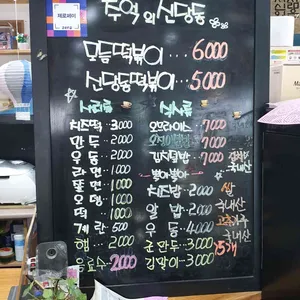 제로페이
추억의 신당동
모듬떡볶이...6000
신당동떡볶이...5000
사리류
치즈떡..3000
만두..2000
우동..2000
라면..1000
쫄면..1000
오뎅..1000
떡..1000
계란..500
햄..2000
음료수..2000
식사류
오므라이스..7000
7000
김치덮밥..7000
치즈밥..2000 쌀
알밥..2000 국내산
우동..4000
국내산
군만두..3000 5개
김말이..3000